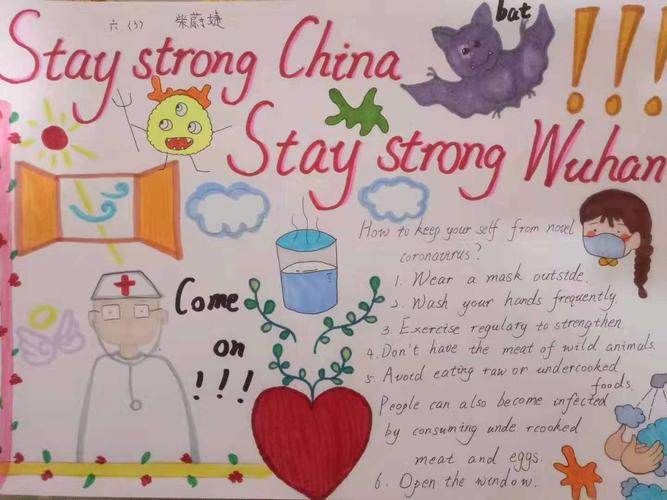 六（3） 柴蔚婕
Stay strong China
bat
!!!
Stay strong Wuhan
How to keep your self from novel
coronavirus?
1. Wear a mask outside.
2. Wash your hands frequently
3. Exercise regulary to strengthen.
4. Don't have the meat of wild animals.
5. Avoid eating raw or undercooked
foods.
People can also become infected
by consuming unde rcooked
meat and eggs.
6. Open the window.
Come
on
!!!